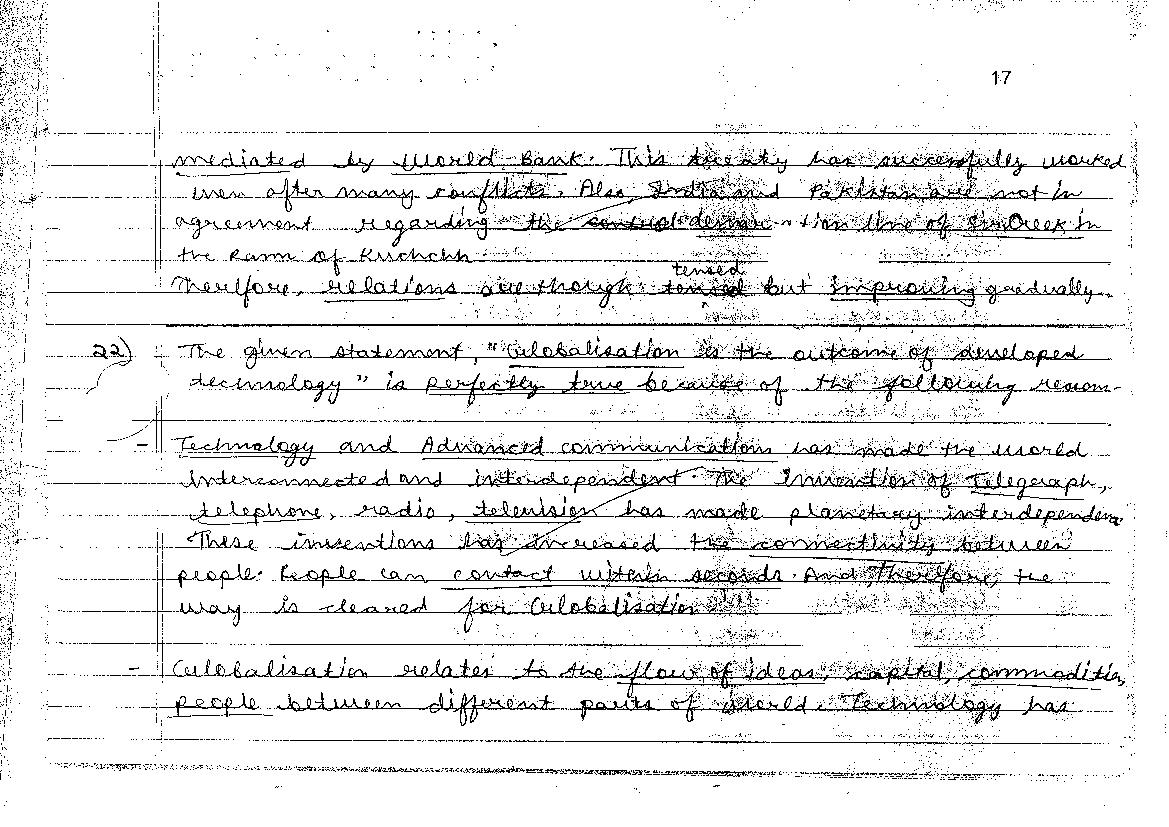 17
mediated by World Bank. This treaty has successfully worked
even after many conflicts. Also, India and Pakistan are not in
agreement regarding the control demar - tion line of Sir Creek in
the Rann of Kuchchh.
tensed
Therefore, relations are though tensed but improving gradually.
22) The given statement, "Globalisation is the outcome of developed
technology" is perfectly true because of the following reason-
- Technology and Advanced communications has made the world
interconnected and interdependent. The Invention of Telegraph,
telephone, radio, television has made planetary interdependence
These inventions has increased the connectivity between
people. People can contact within seconds. And Therefore, the
way is cleared for Globalisation.
- Globalisation relates to the flow of ideas, capital, commodities,
people between different parts of World. Technology has